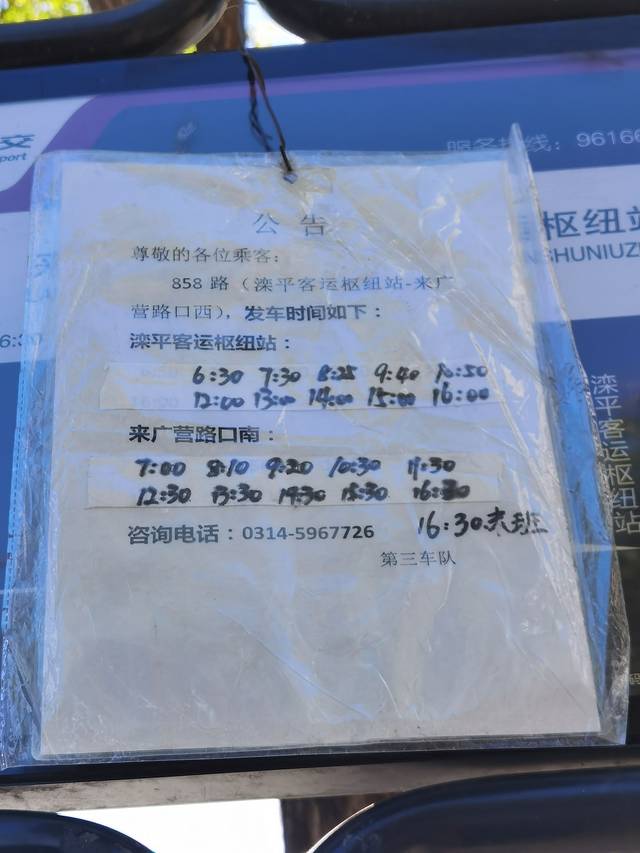 交
port
服务热线：96166
枢纽站
NSHUNIUZ
6:30
公 告
尊敬的各位乘客：
858 路（滦平客运枢纽站-来广
营路口西），发车时间如下：
滦平客运枢纽站：
6:30 7:30 8:25 9:40 10:50
12:00 13:00 14:00 15:00 16:00
来广营路口南：
7:00 8:10 9:20 10:30 11:30
12:30 13:30 14:30 15:30 16:30
16:30末班
咨询电话：0314-5967726
第三车队
滦平客运枢纽站